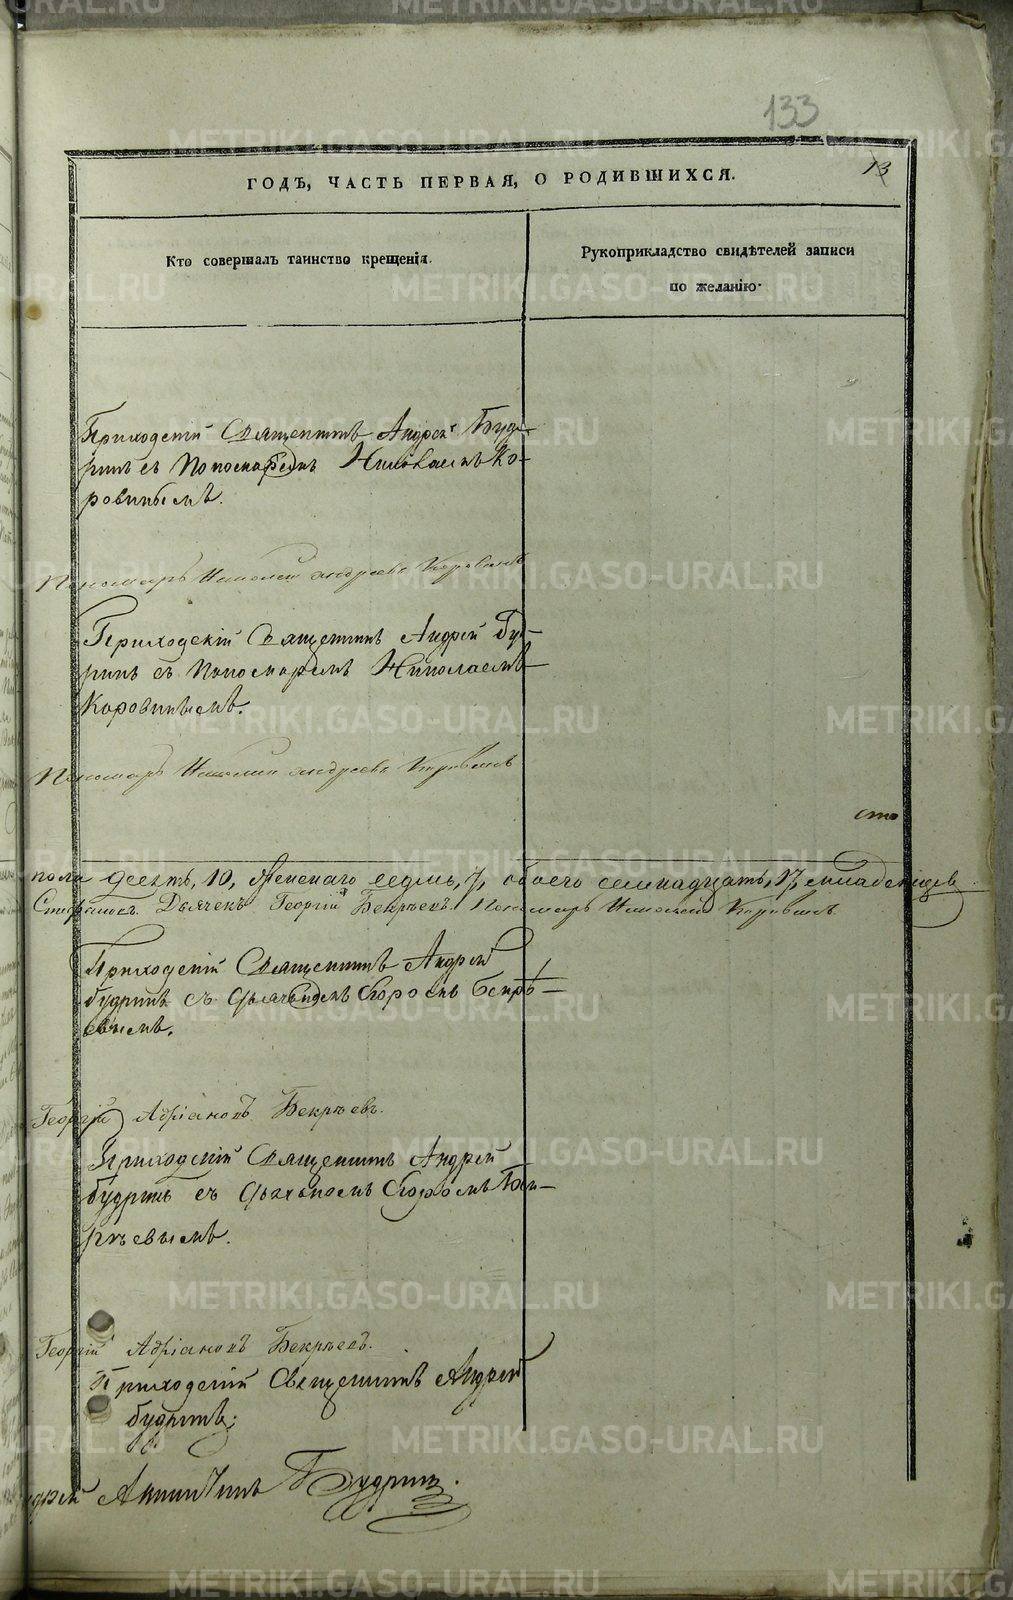 133
13
ГОДЪ, ЧАСТЬ ПЕРВАЯ, О РОДИВШИХСЯ.
Кто совершалъ таинство крещенія.
Рукоприкладство свидѣтелей записи
по желанію.
Приходскій Священникъ Андрей Буд-
ринъ съ Пономаремъ Николаемъ Ко-
ровинымъ.
Пономарь Николай Андреевъ Коровинъ
Приходскій Священникъ Андрей Бу-
ринъ съ Пономаремъ Николаемъ
Коровинымъ.
Пономарь Николай Андреевъ Коровинъ
пола десять, 10, Женскаго седмь, 7, обоего семнадцать, 17, младенцевъ
Дьячекъ Георгій Бекрѣевъ. Пономарь Николай Коровинъ
Приходскій Священникъ Андрей
Будринъ съ Егоромъ Бекрѣ-
евымъ.
Георгій Адріановъ Бекрѣевъ.
Приходскій Священникъ Андрей
Будринъ съ Егоромъ Бек-
рѣевымъ.
Георгій Адріановъ Бекрѣевъ.
Приходскій Священникъ Андрей
Будринъ;
Будринъ.
METRIKI.GASO-URAL.RU